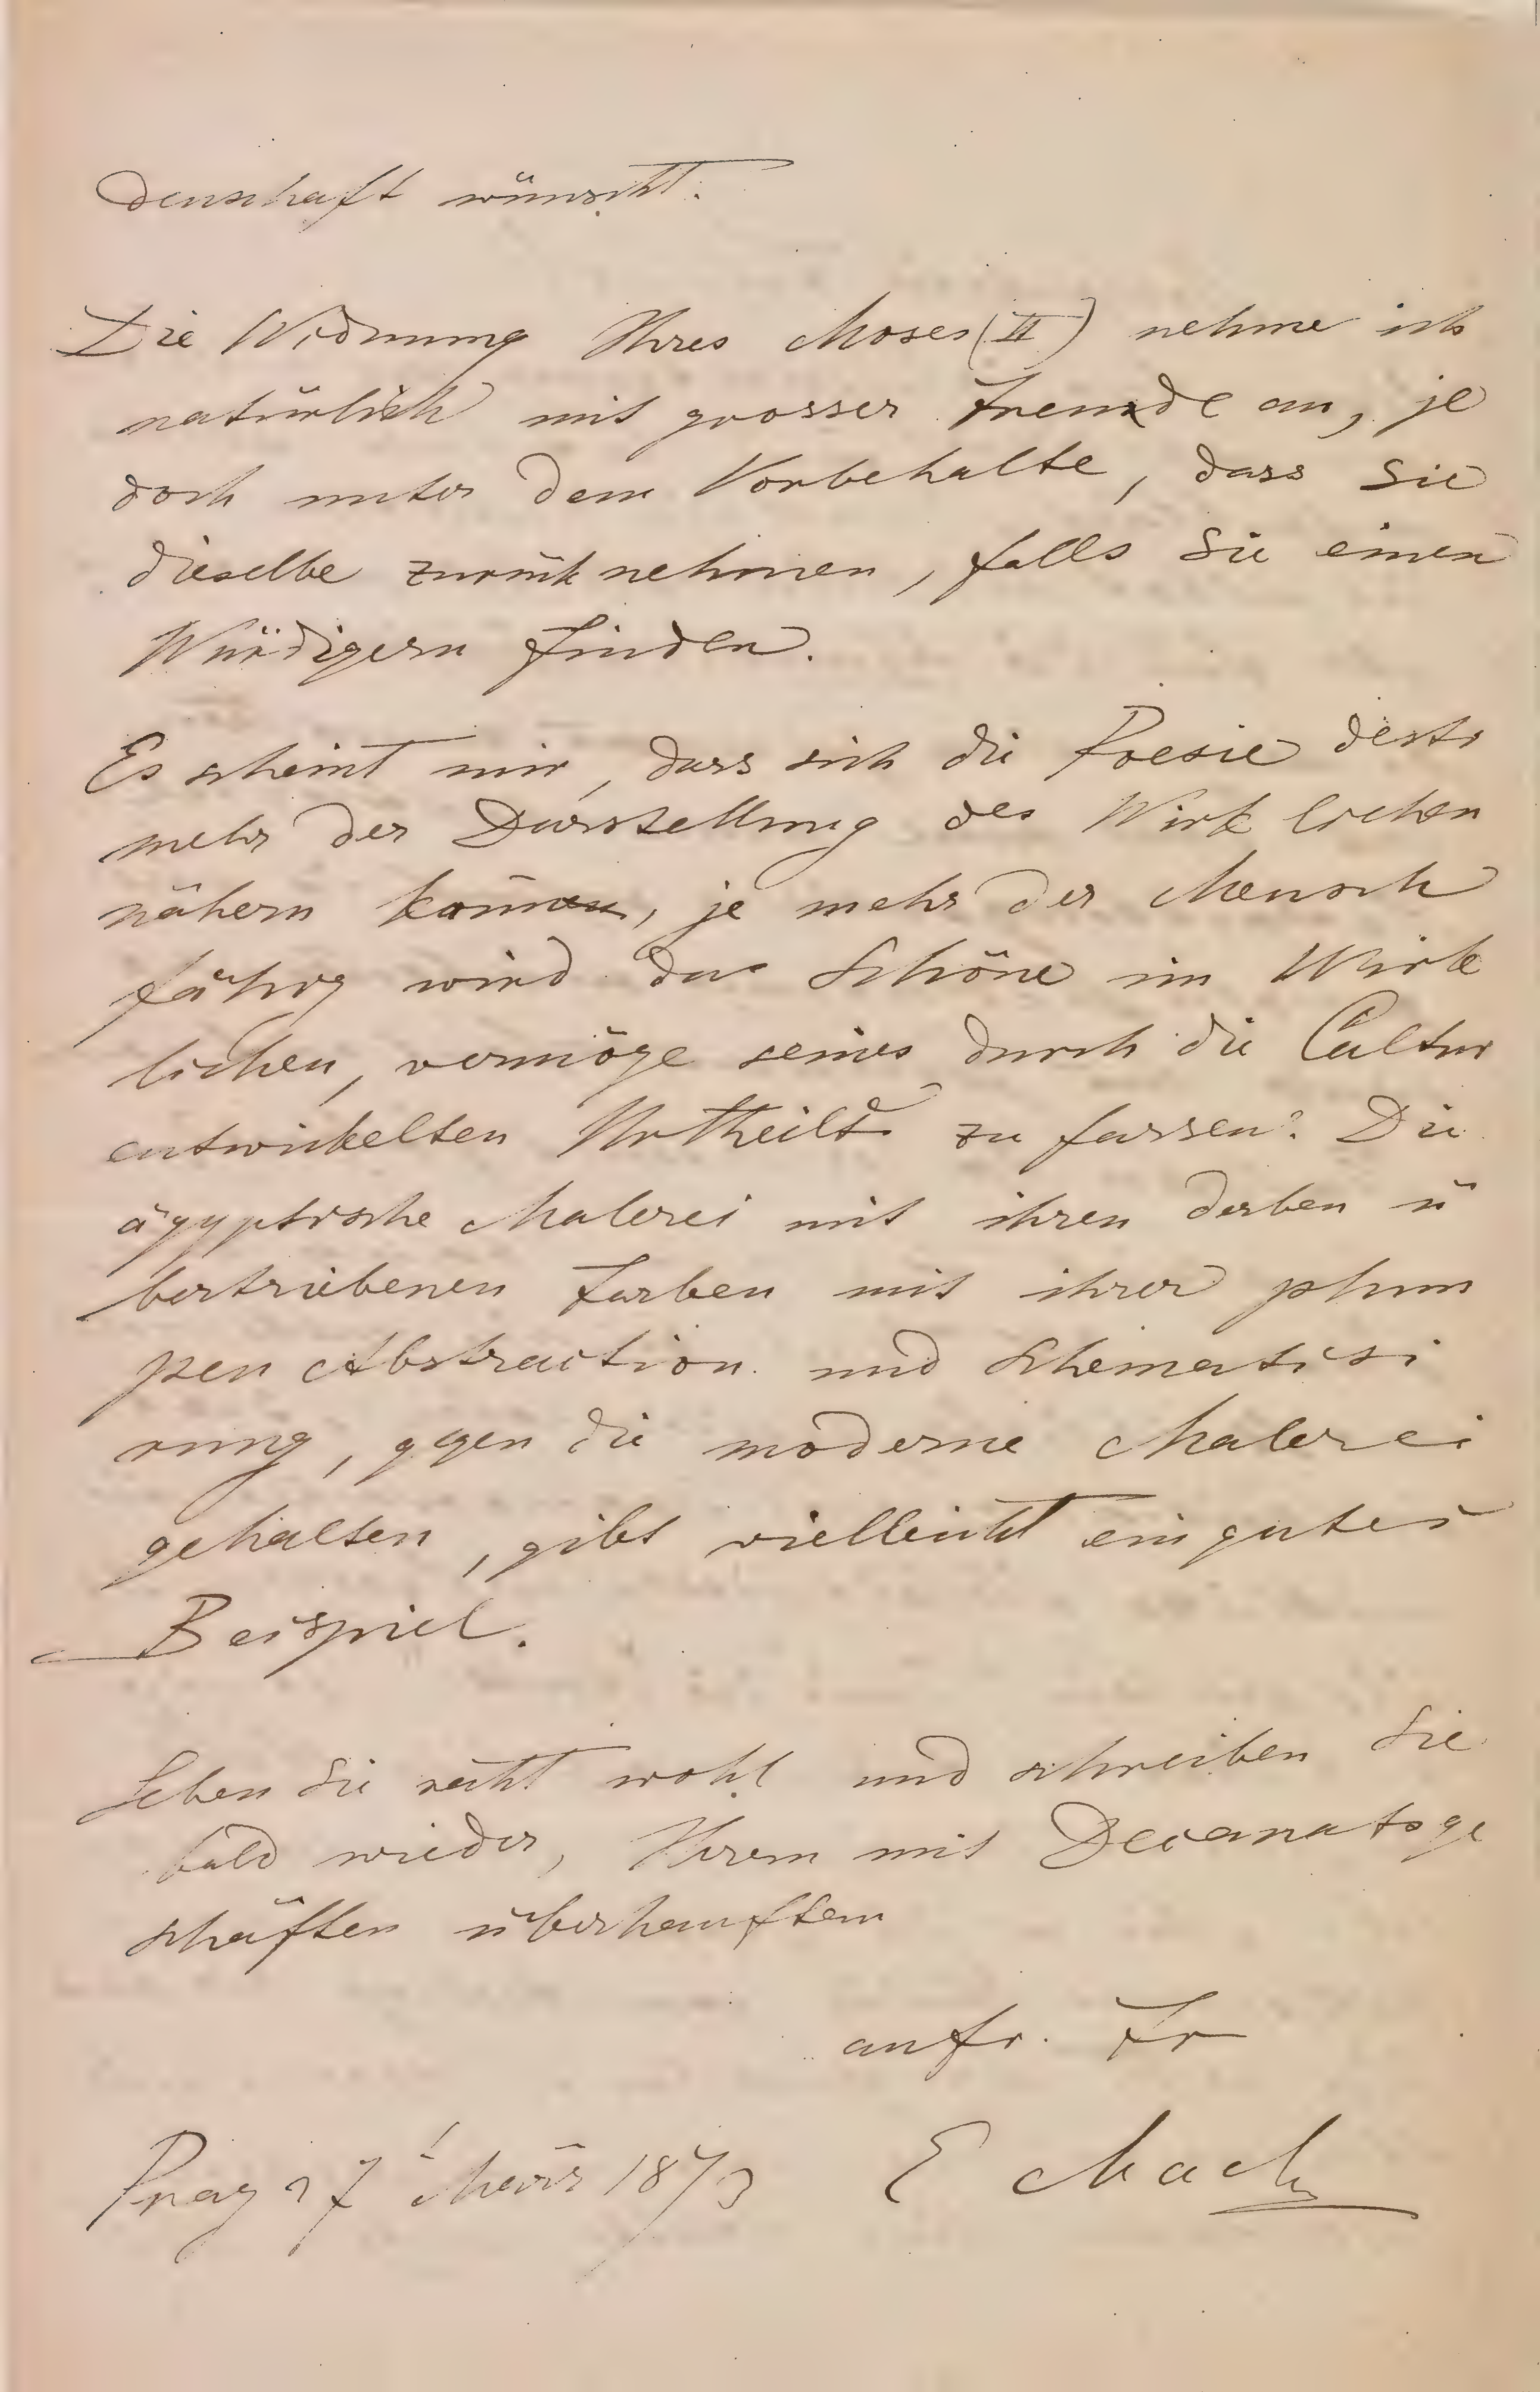 denschaft wünscht.
Die Widmung Ihres Moses (II) nehme ich
natürlich mit grosser Freude an, je
doch unter dem Vorbehalte, dass Sie
dieselbe zurück nehmen, falls Sie einen
Würdigern finden.
Es scheint mir, dass sich die Poesie desto
mehr der Darstellung des Wirk lichen
nähern könne, je mehr der Mensch
fähig wird das Schöne im Wirk
lichen, vermöge seines durch die Cultur
entwickelten Urtheils zu fassen. Die
ägyptische Malerei mit ihren derben ü
bertriebenen Farben mit ihrer plum
pen Abstraction und Schematisi
rung, gegen die moderne Malerei
gehalten, gibt vielleicht ein gutes
Beispiel.
Leben Sie recht wohl und schreiben Sie
bald wieder, Ihrem mit Decanatsge
schäften überhäuften
aufr. Fr
Prag 27 März 1873 E Mach